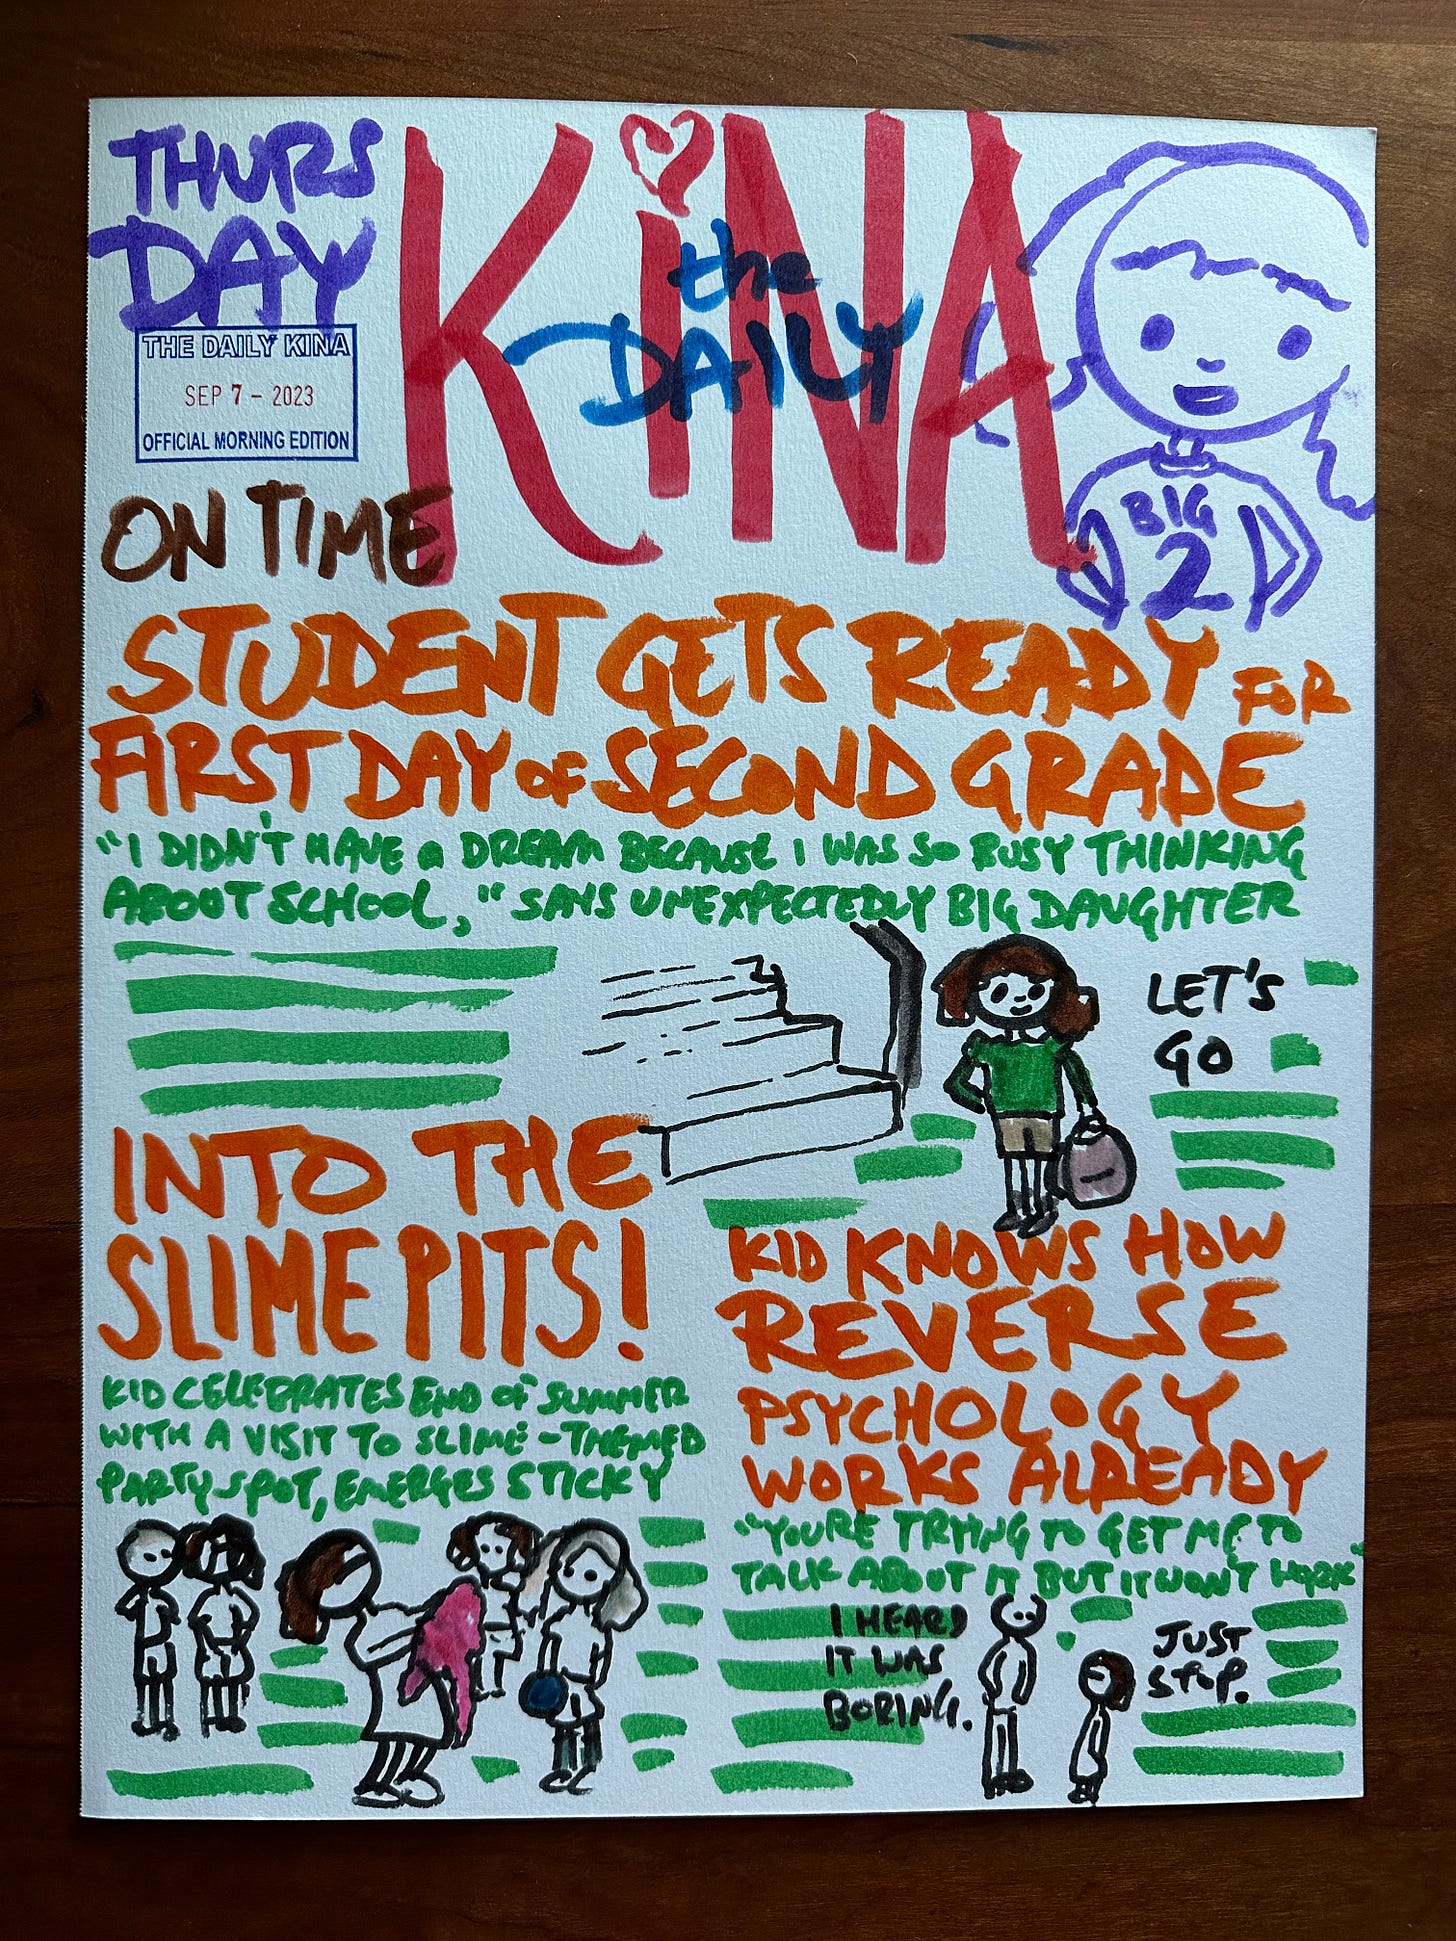 THURS
DAY
THE DAILY KINA
SEP 7 - 2023
OFFICIAL MORNING EDITION
the
DAILY
KiNA
BIG
2
ON TIME
STUDENT GETS READY FOR
FIRST DAY OF SECOND GRADE
"I DIDN'T HAVE a DREAM BECAUSE I WAS SO BUSY THINKING
ABOUT SCHOOL," SAYS UNEXPECTEDLY BIG DAUGHTER
LET'S
GO
INTO THE
SLIME PITS!
KID CELEBRATES END OF SUMMER
WITH A VISIT TO SLIME-THEMED
PARTY SPOT, EMERGES STICKY
KID KNOWS HOW
REVERSE
PSYCHOLOGY
WORKS ALREADY
"YOU'RE TRYING TO GET ME TO
TALK ABOUT IT BUT IT WON'T WORK"
I HEARD
IT WAS
BORING.
JUST
STOP.